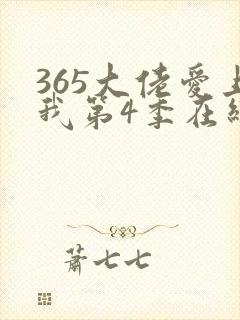 365大佬爱上
我第4季在线
萧七七